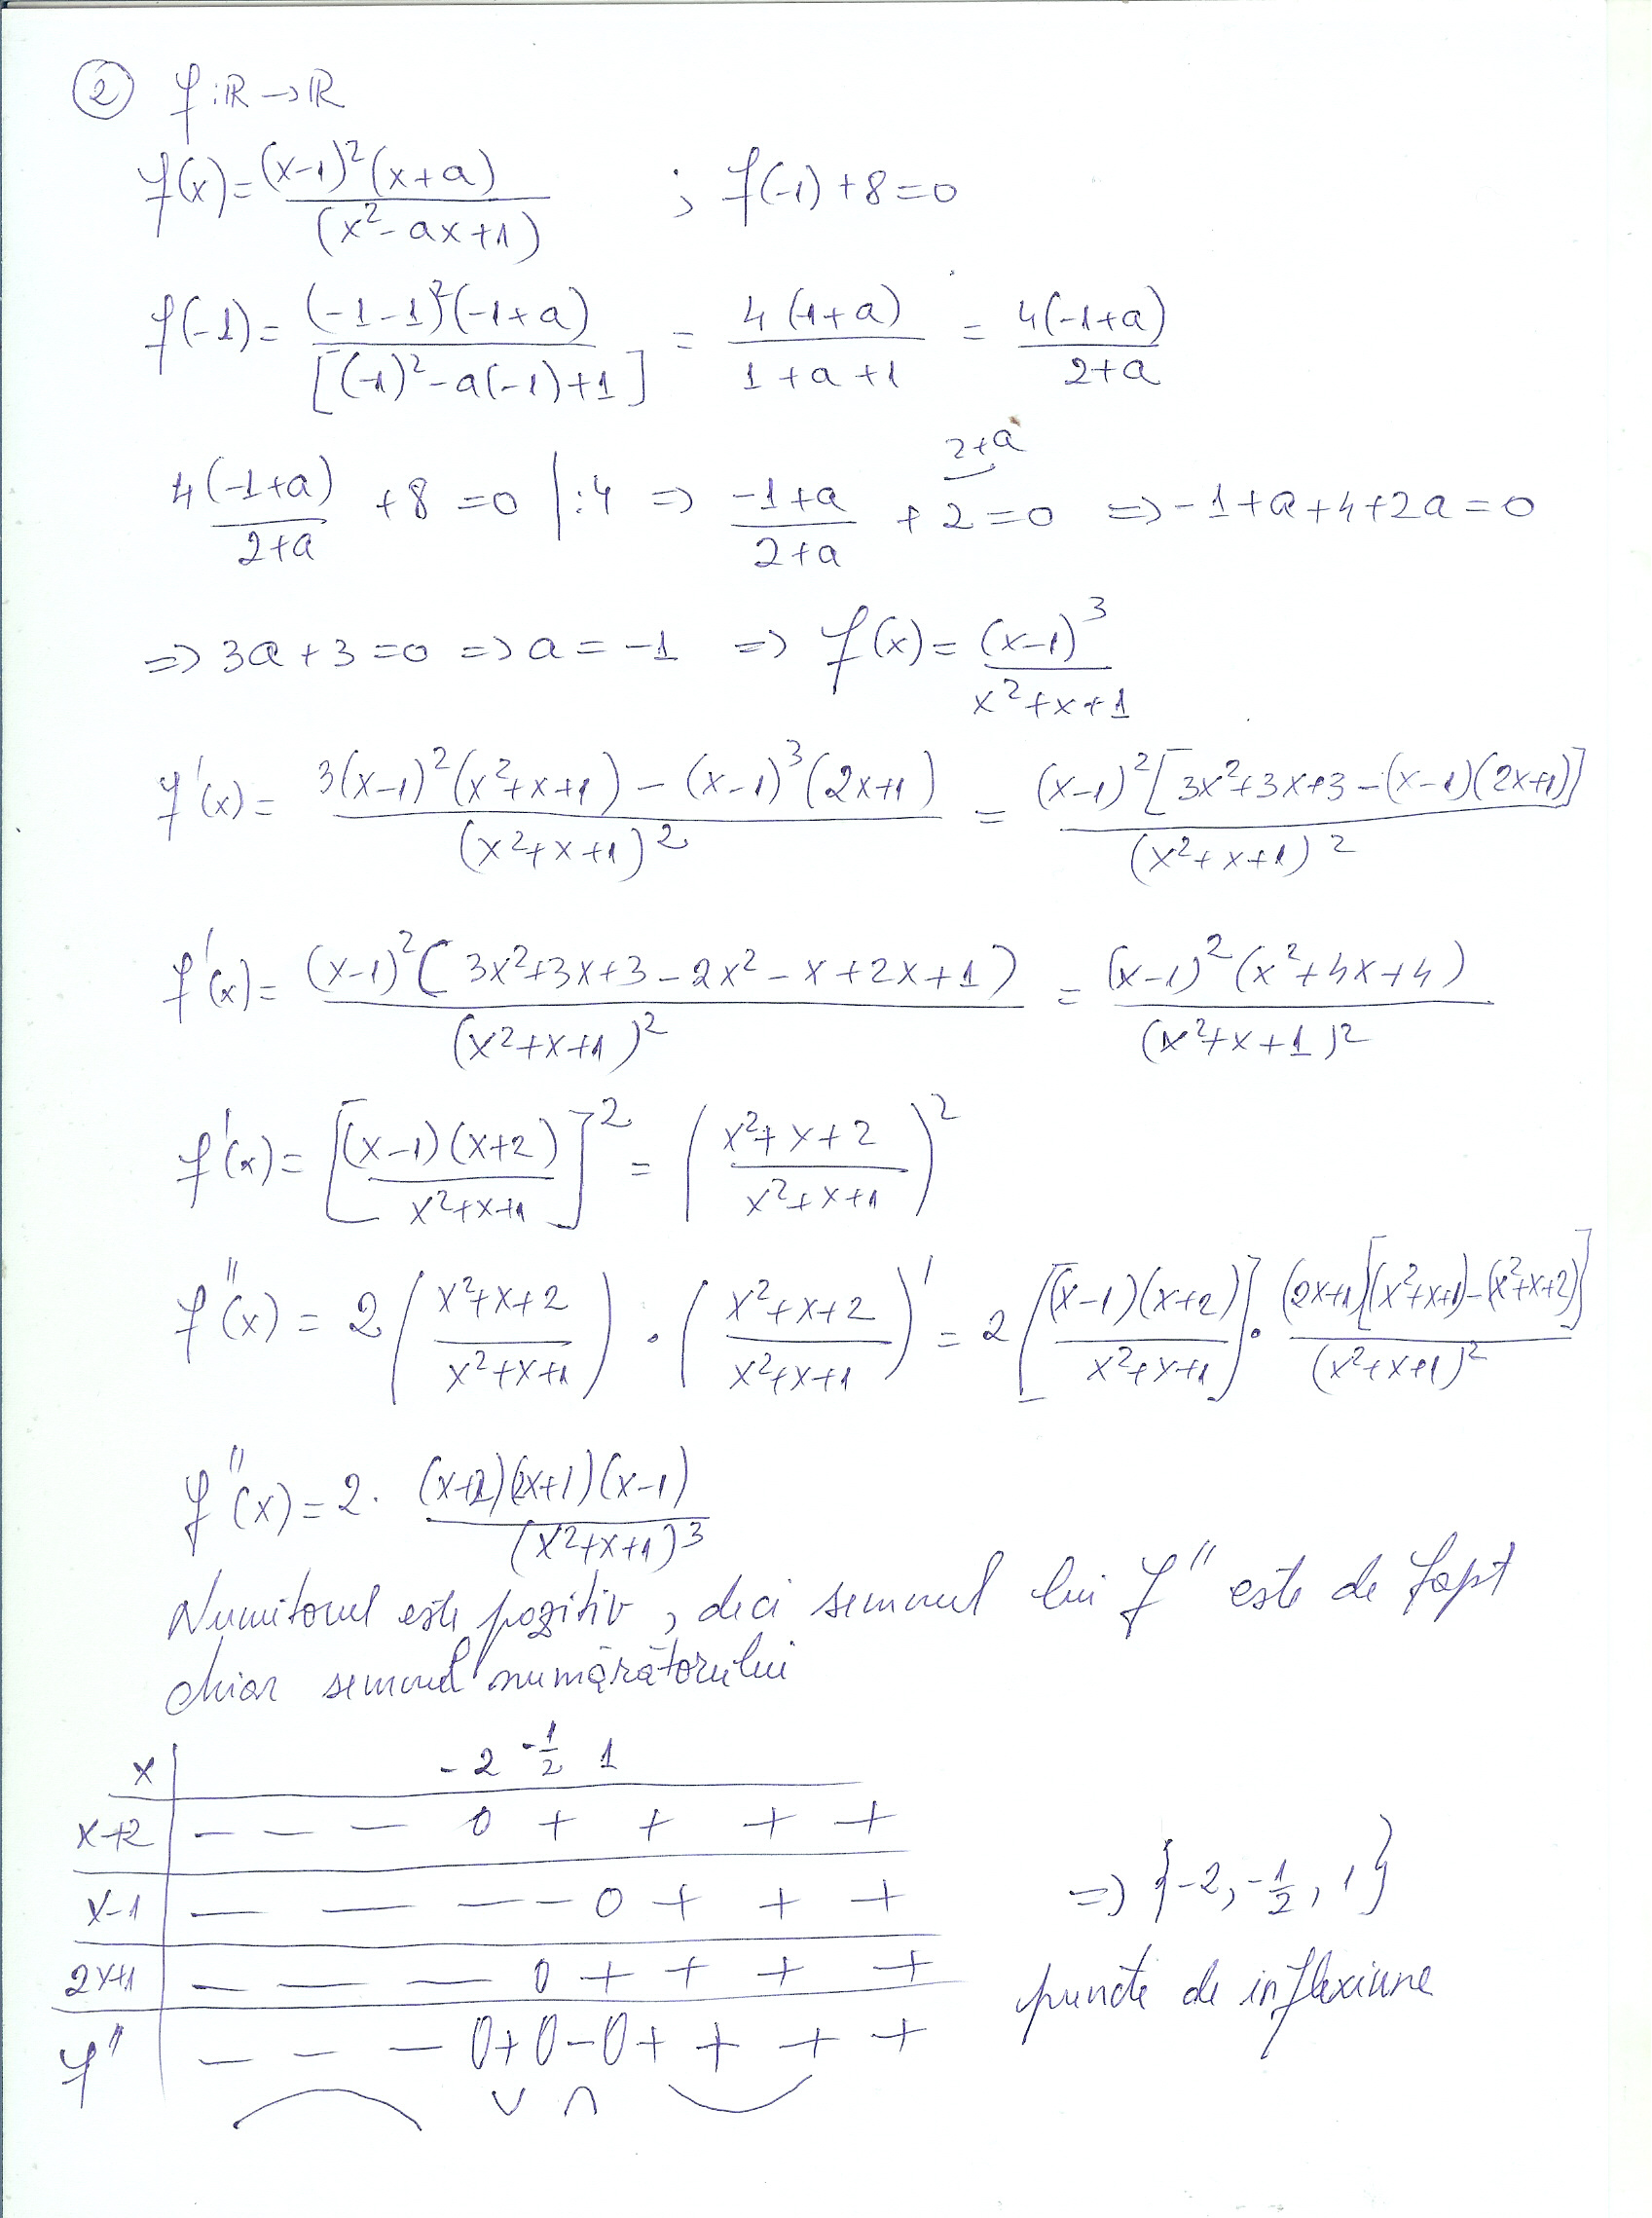 ② f:ℝ→ℝ
f(x)=(x-1)²(x+a)/(x²-ax+1) ; f(-1)+8=0
f(-1)=(-1-1)²(-1+a)/[(-1)²-a(-1)+1] = 4(-1+a)/(1+a+1) = 4(-1+a)/(2+a)
4(-1+a)/(2+a) +8=0 |:4 => (-1+a)/(2+a) + 2=0 (2+a) => -1+a+4+2a=0
=> 3a+3=0 => a=-1 => f(x)=(x-1)³/(x²+x+1)
f'(x)=[3(x-1)²(x²+x+1)-(x-1)³(2x+1)]/(x²+x+1)² = (x-1)²[3x²+3x+3-(x-1)(2x+1)]/(x²+x+1)²
f'(x)=(x-1)²(3x²+3x+3-2x²-x+2x+1)/(x²+x+1)² = (x-1)²(x²+4x+4)/(x²+x+1)²
f'(x)=[(x-1)(x+2)/(x²+x+1)]² = ((x²+x+2)/(x²+x+1))²
f''(x)=2((x²+x+2)/(x²+x+1))·((x²+x+2)/(x²+x+1))' = 2[(x-1)(x+2)/(x²+x+1)]·(2x+1)[(x²+x+1)-(x²+x+2)]/(x²+x+1)²
f''(x)=2·(x+2)(2x+1)(x-1)/(x²+x+1)³
Numitorul este pozitiv, deci semnul lui f'' este de fapt
chiar semnul numărătorului
x | -2 -1/2 1
x+2 | - - - 0 + + + +
x-1 | - - - - 0 + + +
2x+1 | - - - 0 + + + +
f'' | - - - 0 + 0 - 0 + + + +
=> {-2, -1/2, 1}
puncte de inflexiune